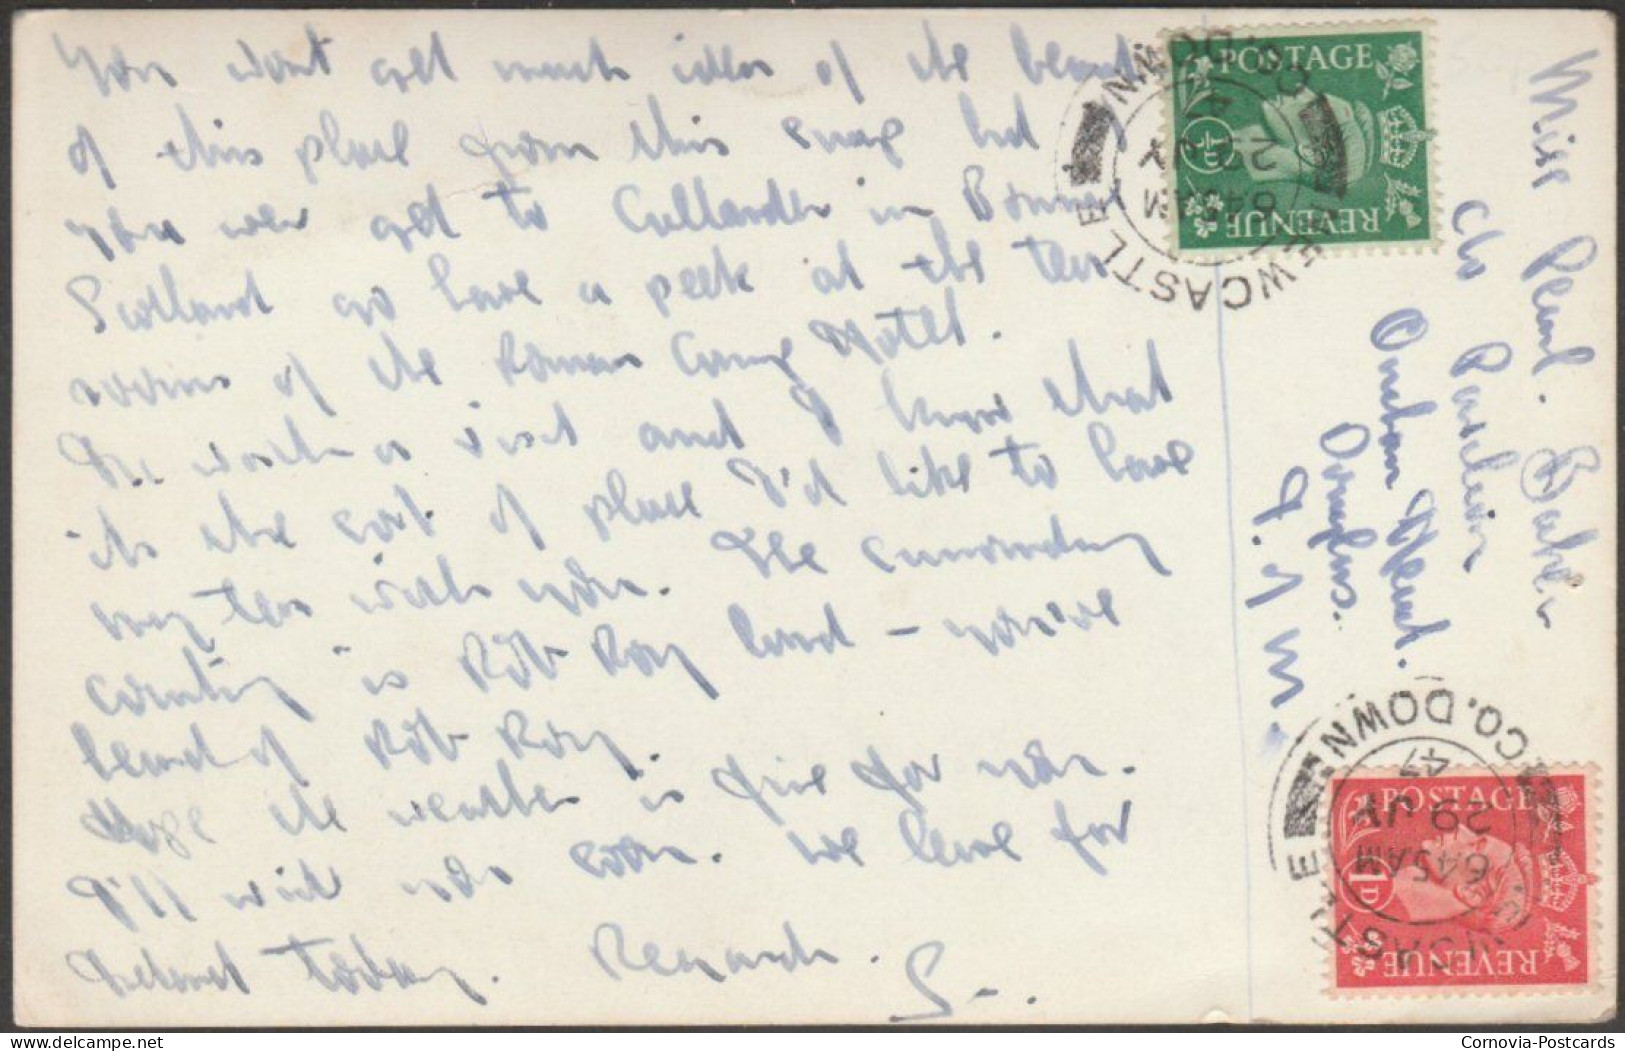 You wont get much idea of the beauty
of this place from this snap but
you ever get to Callander in Bonny
Scotland go have a peek at the tea
rooms of the Roman Camp Hotel.
worth a visit and I know that
its the sort of place I'd like to have
my tea with you. The surrounding
country is Rob Roy land - you've
heard of Rob Roy.
Hope the weather is fine for you.
I'll write you soon. We leave for
Ireland today. Regards.
S-.
Miss Pearl. Baker
c/o
Onchan Head.
Douglas.
I. of M.
POSTAGE
½D
REVENUE
NEWCASTLE CO. DOWN
645AM
29 JY
47
POSTAGE
1D
REVENUE
NEWCASTLE CO. DOWN
645AM
29 JY
47
delcampe.net
Cornovia-Postcards